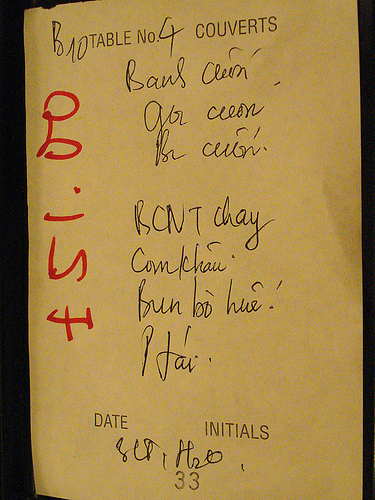 B10 TABLE No. 4 COUVERTS
Banh cuốn
Gỏi cuốn
Bì cuốn.
BCNT chay
Cơm khâu.
Bun bò huế!
P tái.
DATE INITIALS
H2O
33